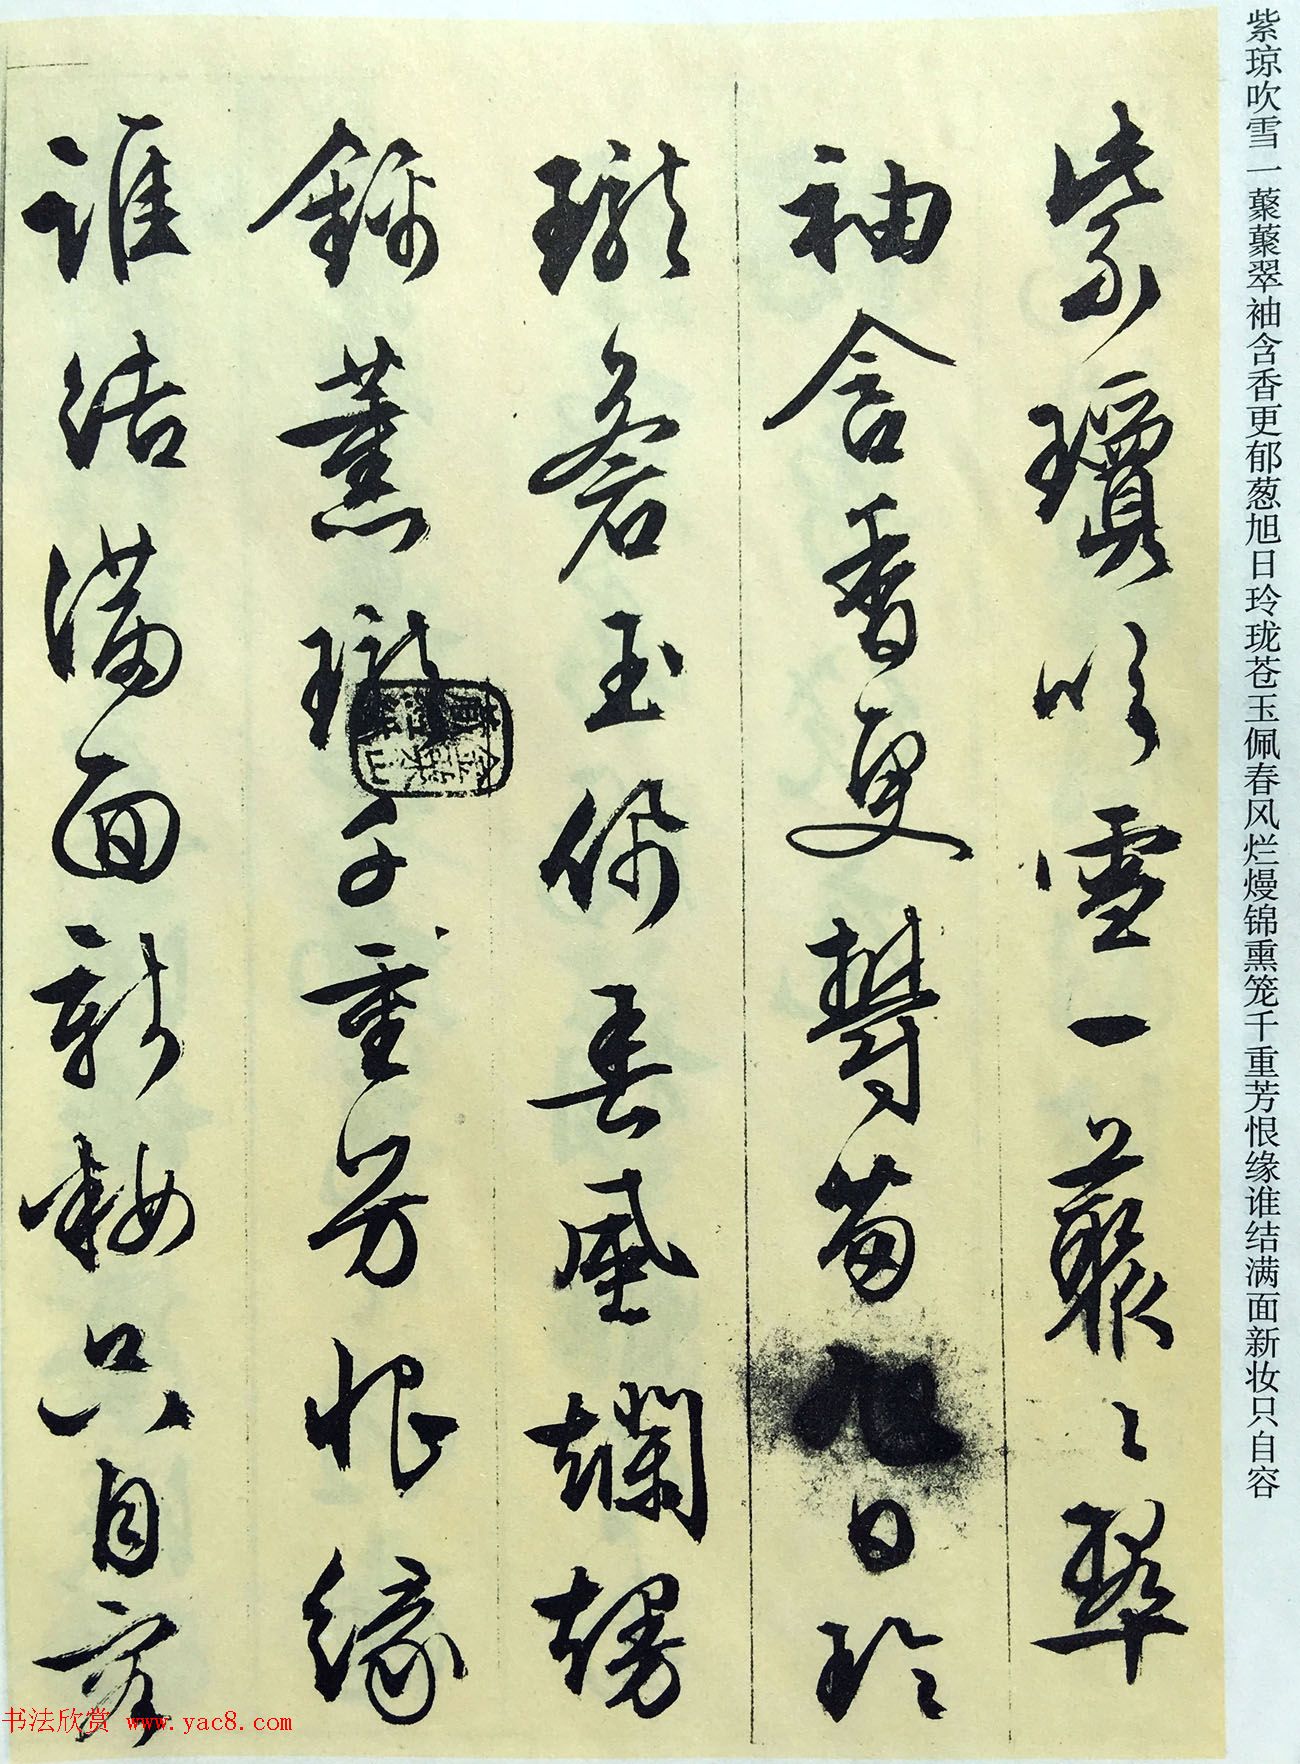 紫琼吹雪一蕞蕞翠袖含香更郁葱旭日玲珑苍玉佩春风烂熳锦熏笼千重芳恨缘谁结满面新妆只自容
紫瓊吹雪一藂〻翠
袖含香更鬱葱旭日玲
瓏蒼玉佩春風爛熳
錦薰瓏千重芳恨緣
誰結滿面新妝只自容
书法欣赏 www.yac8.com